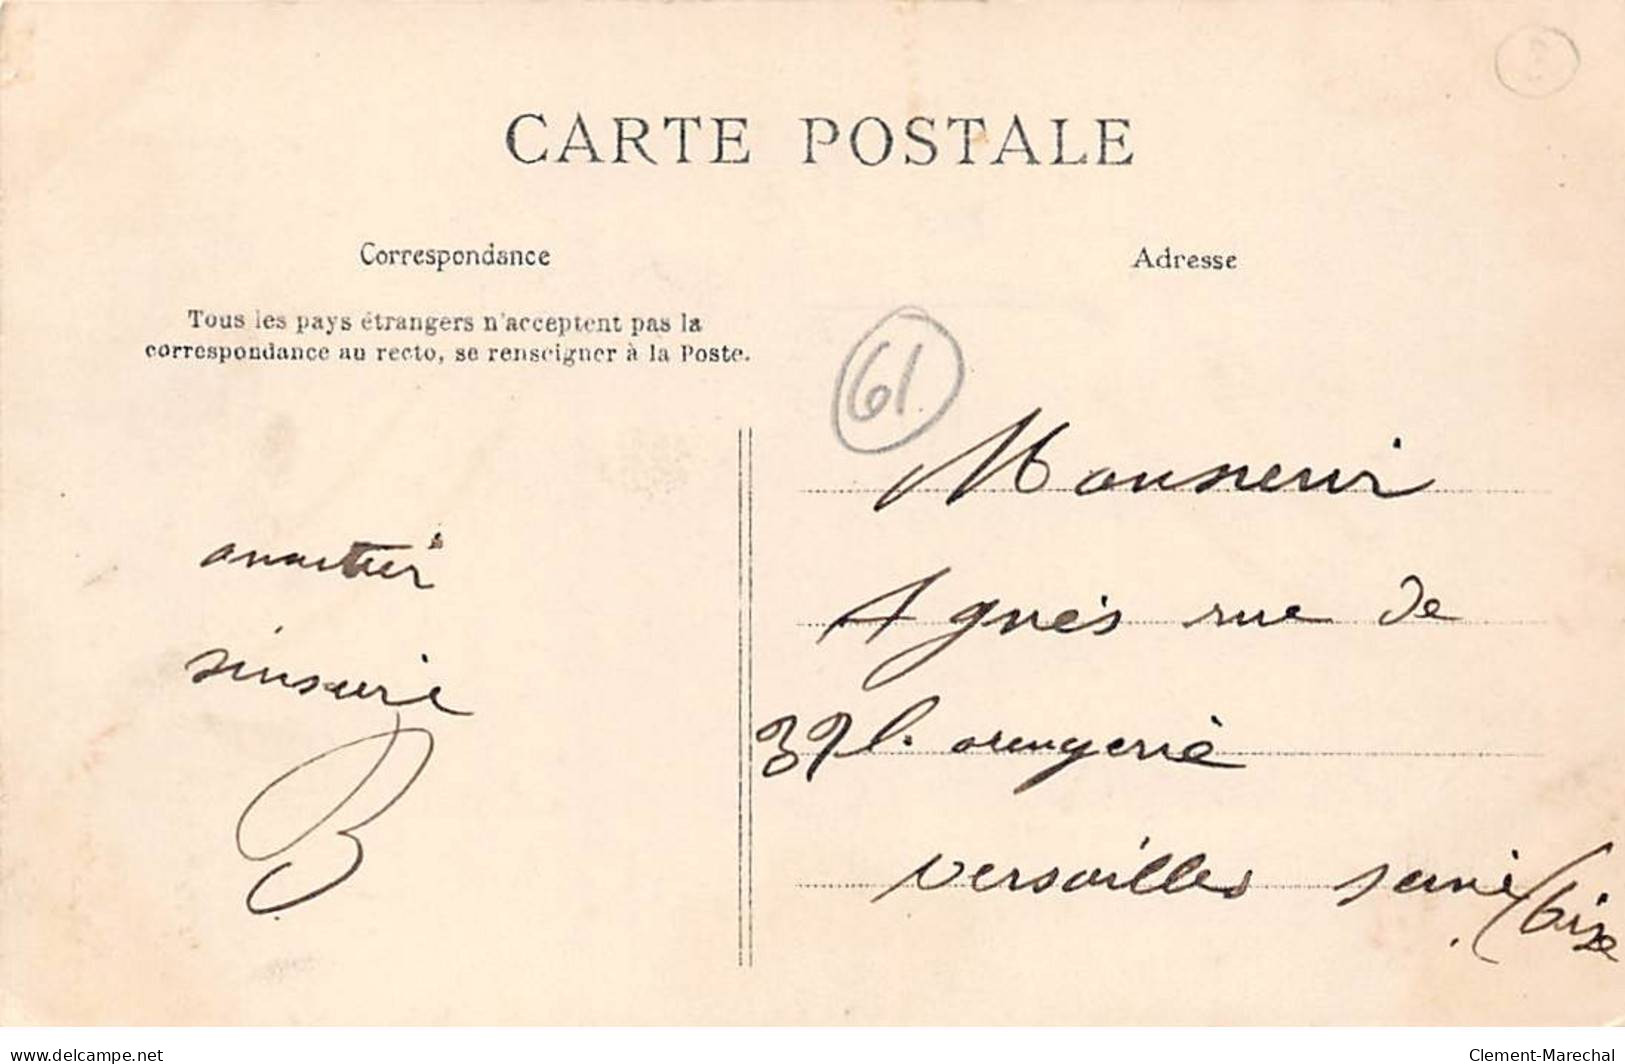 CARTE POSTALE
Correspondance
Tous les pays étrangers n'acceptent pas la
correspondance au recto, se renseigner à la Poste.
B
Adresse
61
Monsieur
Agnès rue de
39 l. orengerie
versailles seine
/oise
delcampe.net
Clement-Marechal